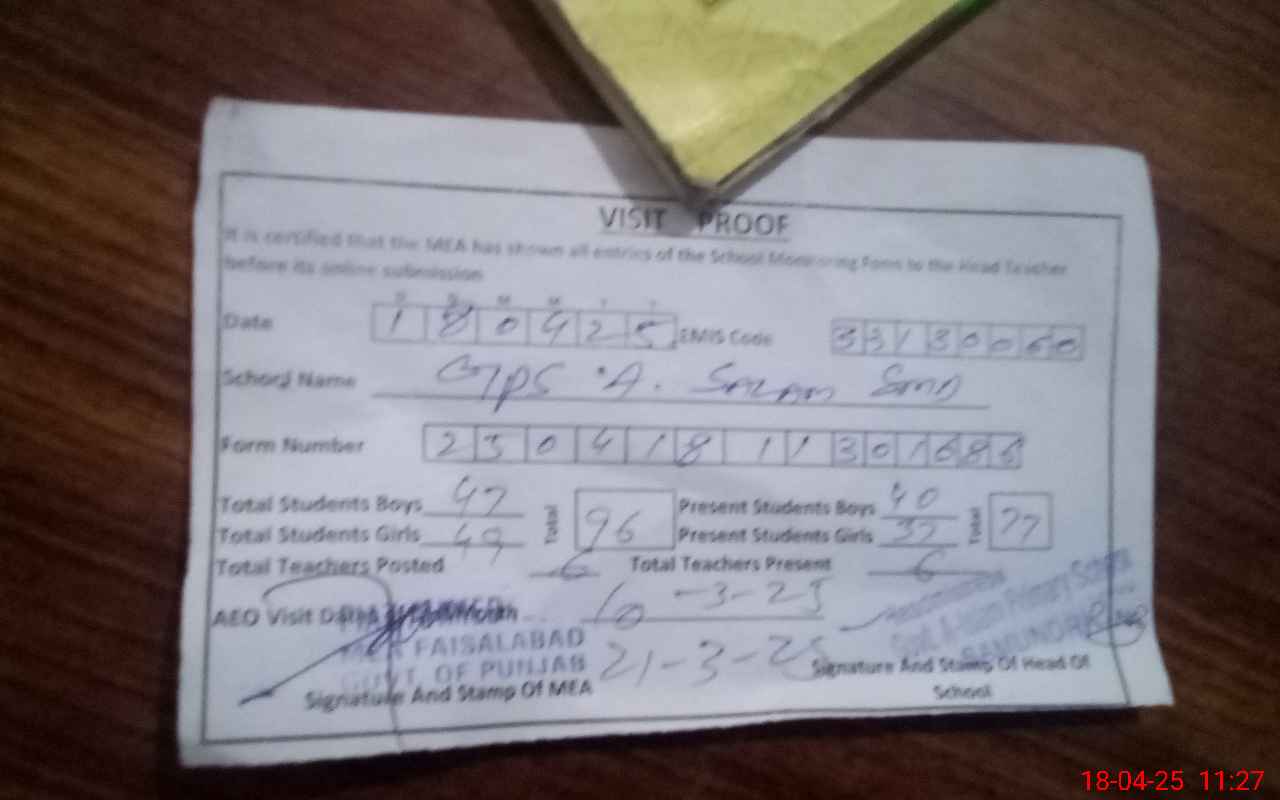 VISIT PROOF
It is certified that the MEA has shown all entries of the School Monitoring Form to the Head Teacher
before its online submission
D D M M Y Y
Date 1 8 0 4 2 5 EMIS Code 3 3 1 3 0 0 6 0
School Name GPS A. Salam Smd
Form Number 2 5 0 4 1 8 1 1 3 0 1 6 8 6
Total Students Boys 47 Total 96 Present Students Boys 40 Total 77
Total Students Girls 49 Present Students Girls 37
Total Teachers Posted 6 Total Teachers Present 6
AEO Visit 10-3-25
MEA FAISALABAD 21-3-25
GOVT. OF PUNJAB
Primary School
SAMUNDRI
Signature And Stamp Of MEA
Signature And Stamp Of Head Of
School
18-04-25 11:27